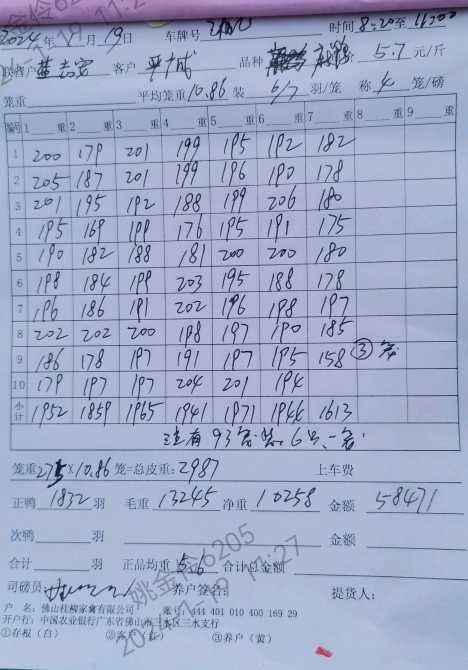 2024年1月19日 车牌号 时间 8:20至11:00
联营户 黄志安 客户 平成 品种 价 5.7 元/斤
笼重 平均笼重10.86 装 6/7 羽/笼 称 4 笼/磅
编号 1 重 2 重 3 重 4 重 5 重 6 重 7 重 8 重 9 重
1 200 179 201 199 195 192 182
2 205 187 201 199 196 190 178
3 201 195 192 188 199 206 180
4 195 169 199 176 195 191 175
5 190 182 188 181 200 200 180
6 198 184 199 203 195 188 178
7 196 186 191 202 196 198 197
8 202 202 200 198 197 190 185
9 186 178 197 191 197 195 158 ③笼
10 179 197 197 204 201 194
小计 1952 1859 1965 1941 1971 1944 1613
注:有93笼装6只一笼
笼重275×10.86笼=总皮重:2987 上车费
正鸭 1832 羽 毛重 13245 净重 10258 金额 58471
次鸭 羽 金额
合计 羽 正品均重 5.6 合计总金额
司磅员: 养户签名: 提货人:
户 名:佛山桂柳家禽有限公司 账号:444 401 010 400 169 29
开户行:中国农业银行广东省佛山市三水区三水支行
①存根(白) ②客户(红) ③养户(黄)
姚金伶6205
2024/1/19 11:27